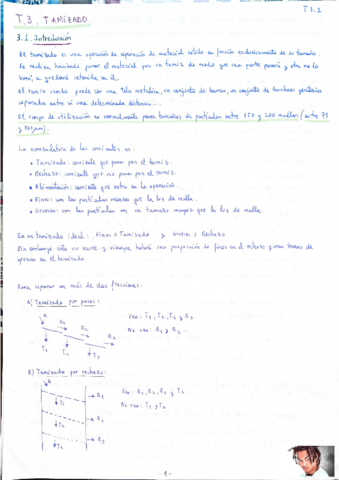 T3.1
T.3. TAMIZADO
3.1. Introducción
El tamizado es una operación de separación de material sólido en función exclusivamente de su tamaño.
Se realiza haciendo pasar el material por un tamiz de modo que una parte pasará y otra no lo
hará, y quedará retenida en él.
El tamiz usado puede ser una tela metálica, un conjunto de barras, un conjunto de
separados entre sí una determinada distancia...
El rango de utilización es normalmente para tamaños de partículas entre y 200 mallas (entre 75
La nomenclatura de las corrientes es:
• Tamizado: corriente que pasa por el tamiz.
• Rechazo: corriente que no pasa por el tamiz.
• Alimentación: corriente que entra en la operación.
• Finos: son las partículas menores que la luz de malla.
• Gruesos: son las partículas con un tamaño mayor que la luz de malla.
En un tamizado ideal: Finos = Tamizado y Gruesos = Rechazo
Sin embargo esto no ocurre y siempre habrá una proporción de finos en el rechazo y unas trazas de
gruesos en el tamizado.
Para separar en más de dos fracciones:
A) Tamizado por pasos:
A R1 R2 R3
T1 T2 T3
Uso: T1, T2, T3 y R3
No uso: R1 y R2
B) Tamizado por rechazo:
A
R1
T1
R2
T2
R3
T3
Uso: R1, R2, R3 y T3
No uso: T1 y T2
-1-